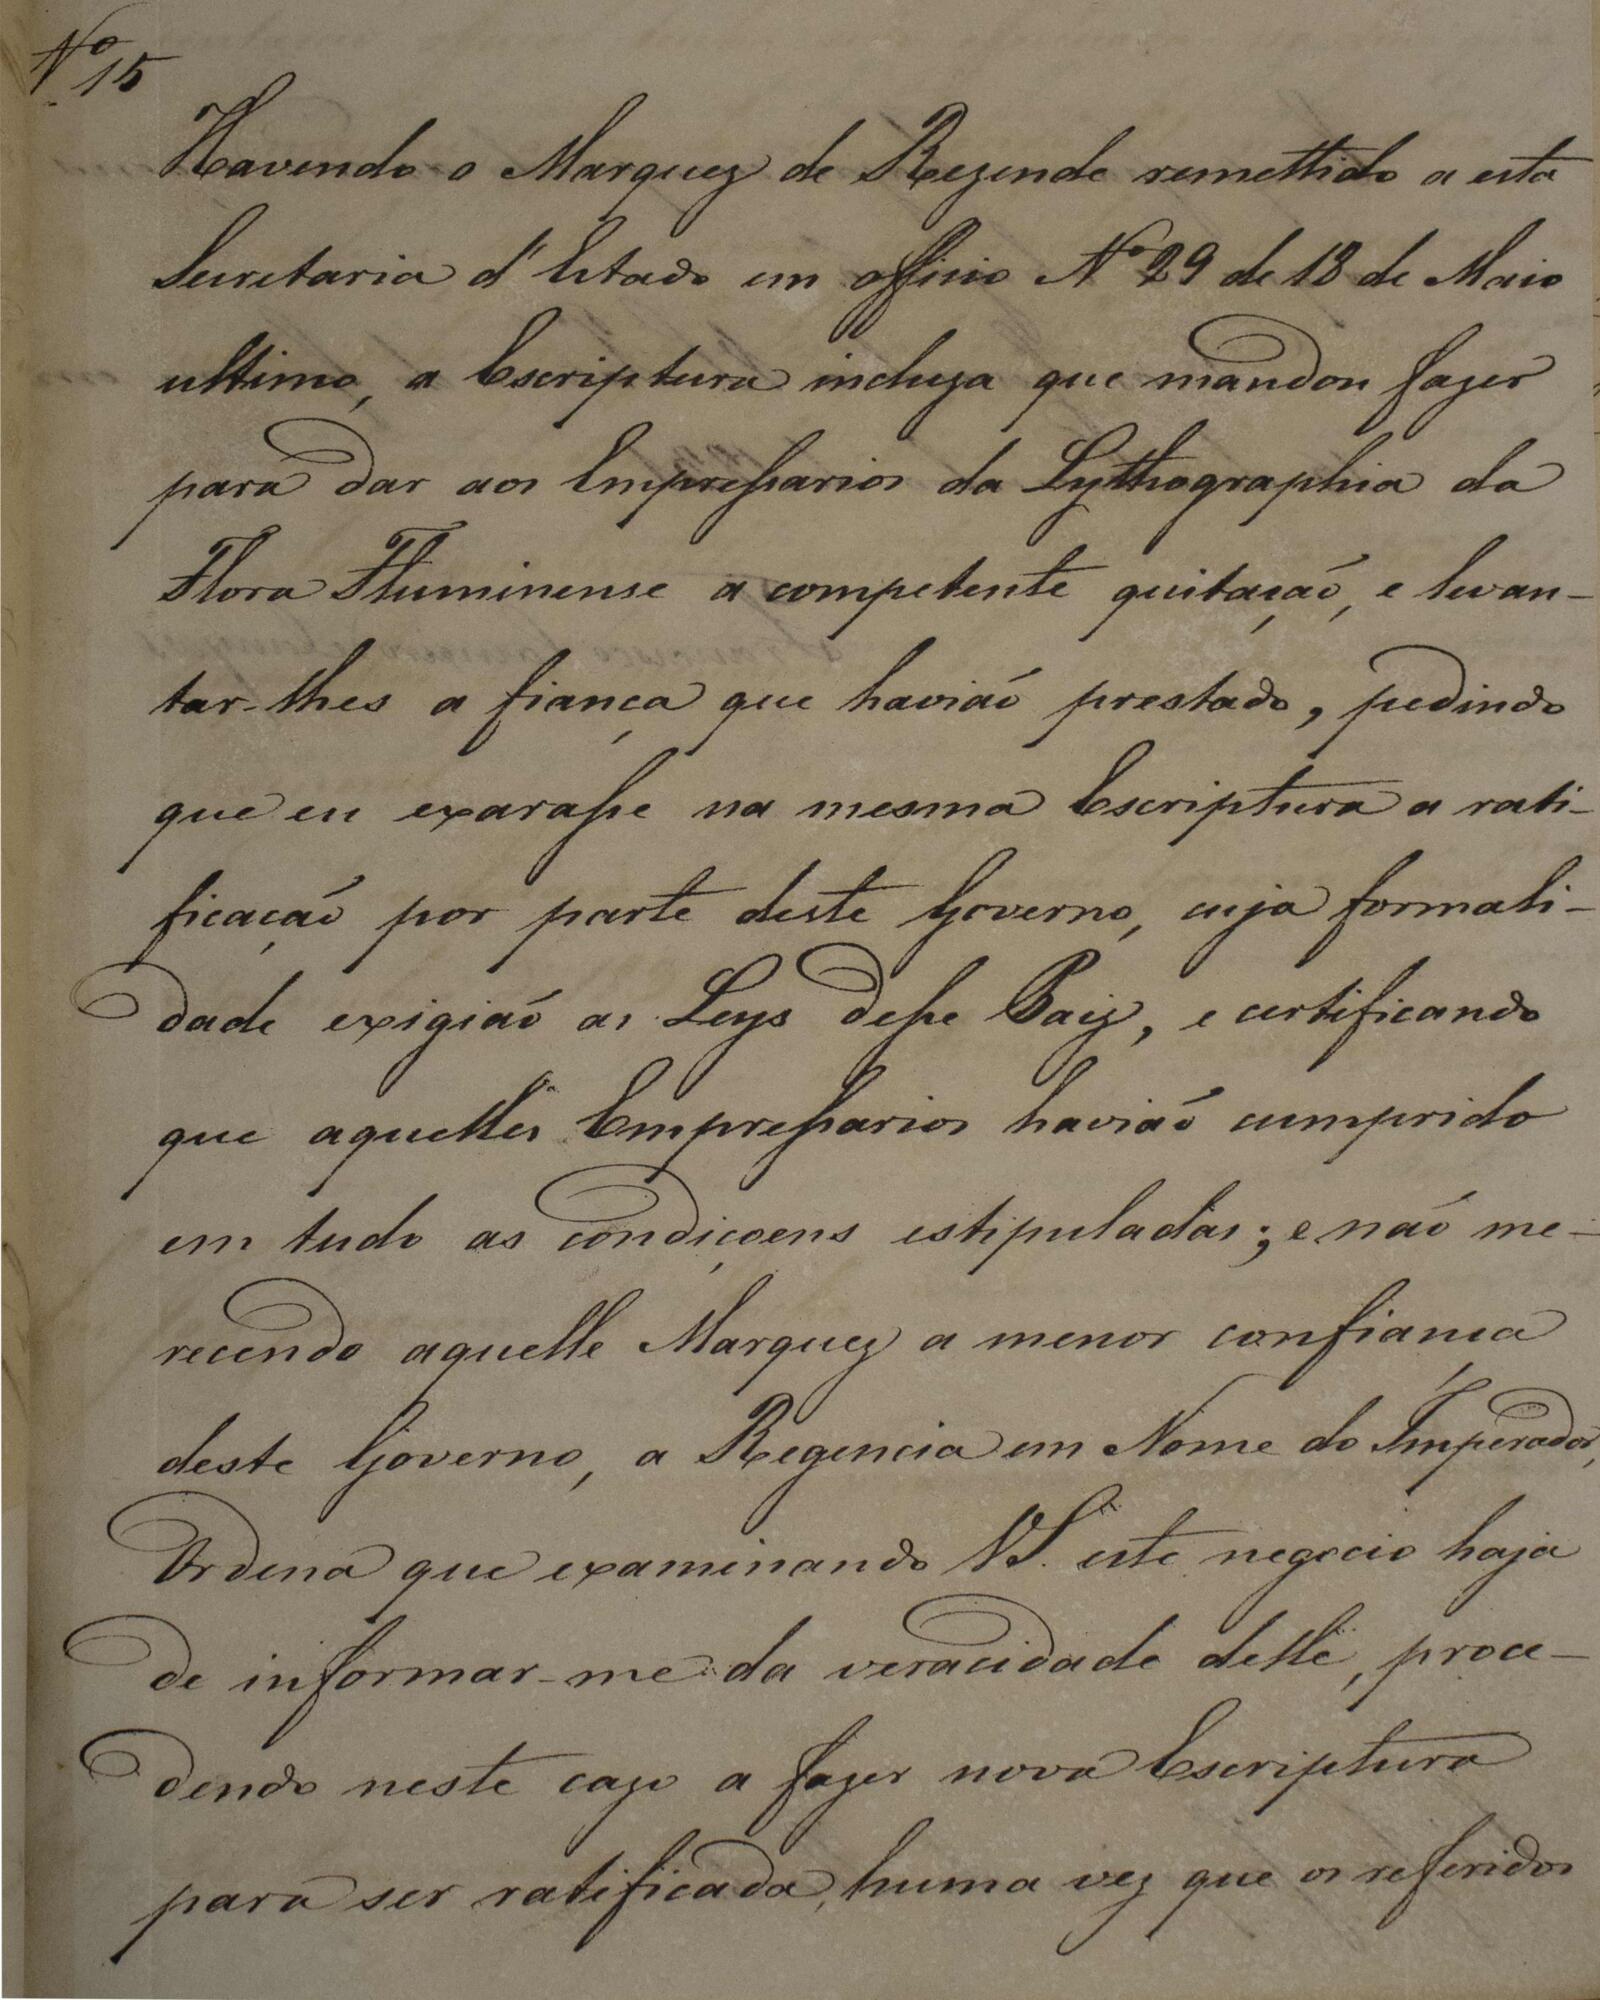 Nº 15
Havendo o Marquez de Rezende remettido a esta
Secretaria d'Estado em officio Nº 29 de 18 de Maio
ultimo, a Escriptura incluza que mandou fazer
para dar aos Empressarios da Lythographia da
Flora Fluminense a competente quitação, e levan-
tar-lhes a fiança que havião prestado, pedindo
que eu exarasse na mesma Escriptura a rati-
ficação por parte deste Governo, cuja formali-
dade exigião as Leys desse Paiz, e certificando
que aquelles Empressarios havião cumprido
em tudo as condiçoens estipuladas; e não me-
recendo aquelle Marquez a menor confiança
deste Governo, a Regencia em Nome do Imperador,
Ordena que examinando VS. este negocio haja
de informar-me da veracidade delle, proce-
dendo neste cazo a fazer nova Escriptura
para ser ratificada, huma vez que os referidos